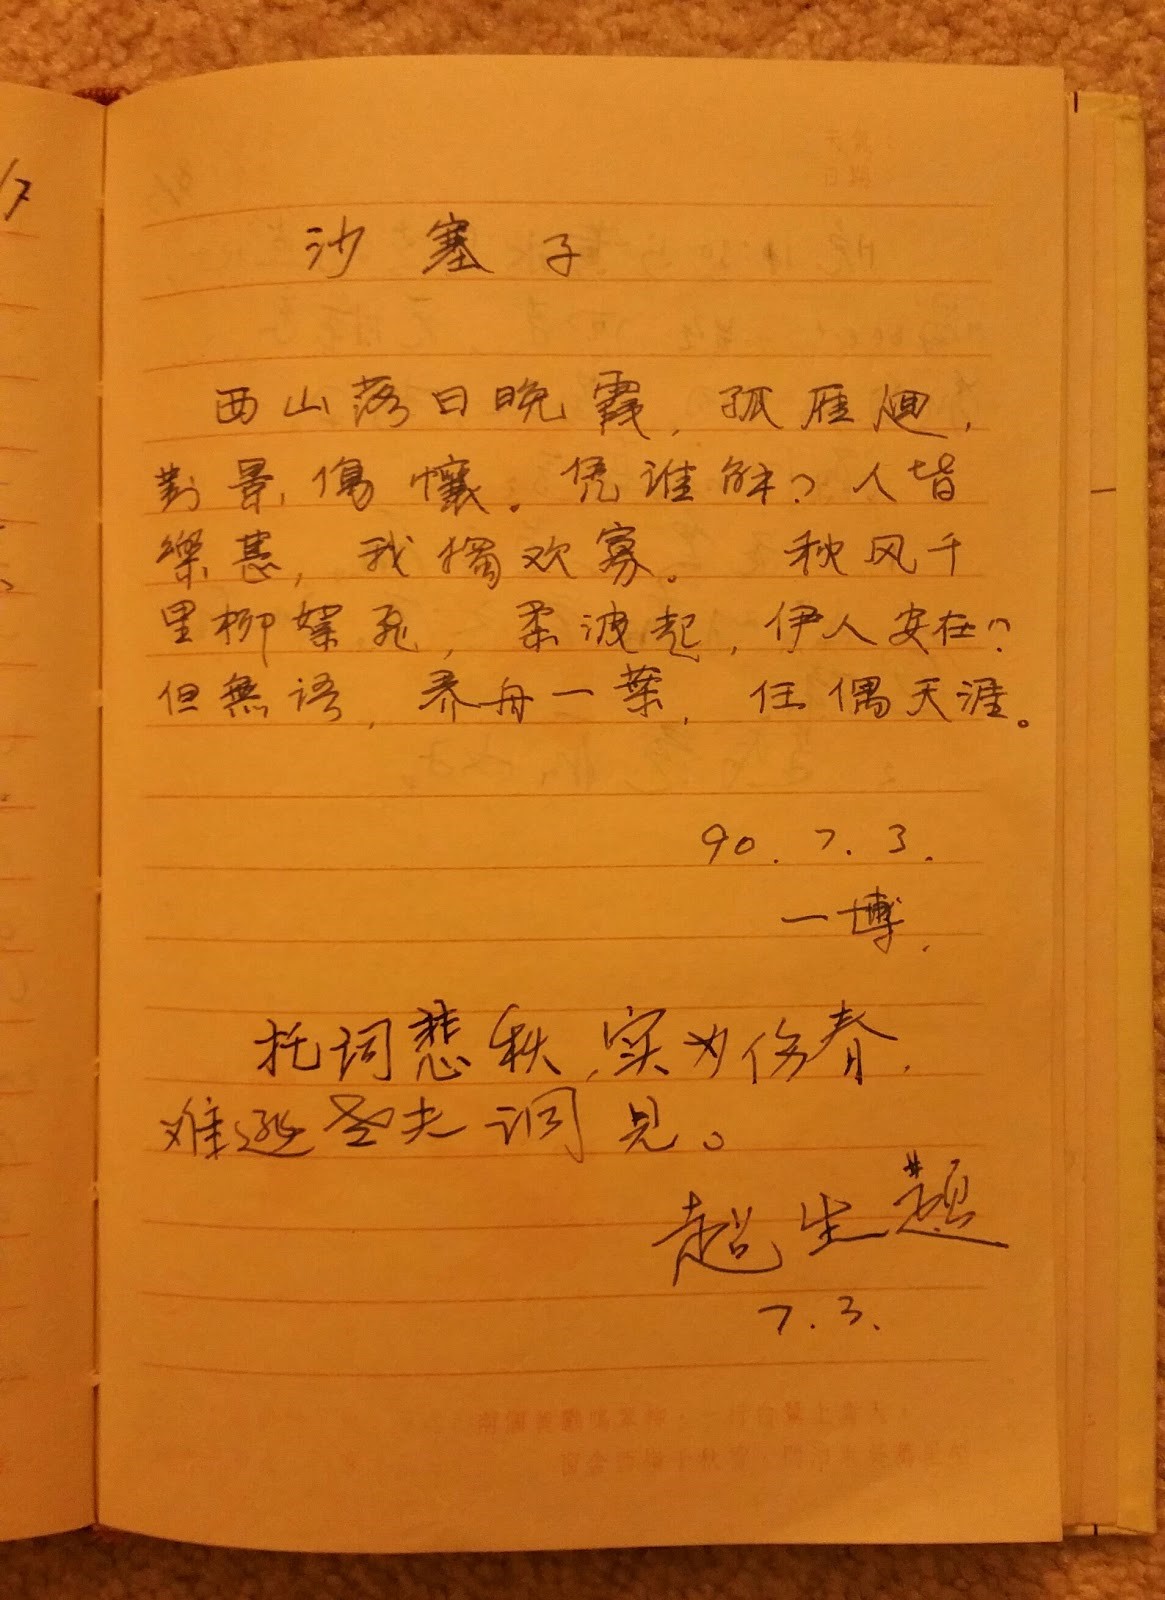 沙塞子
西山落日晚霞，孤雁迴，
對景傷懷。凭谁解？人皆
樂甚，我獨欢寡。 秋风千
里柳絮飛，柔波起，伊人安在？
但無语，弄舟一葉，任偶天涯。
90.7.3.
一博.
托词悲秋，实为伤春，
难逃圣夫洞见。
超生题
7.3.